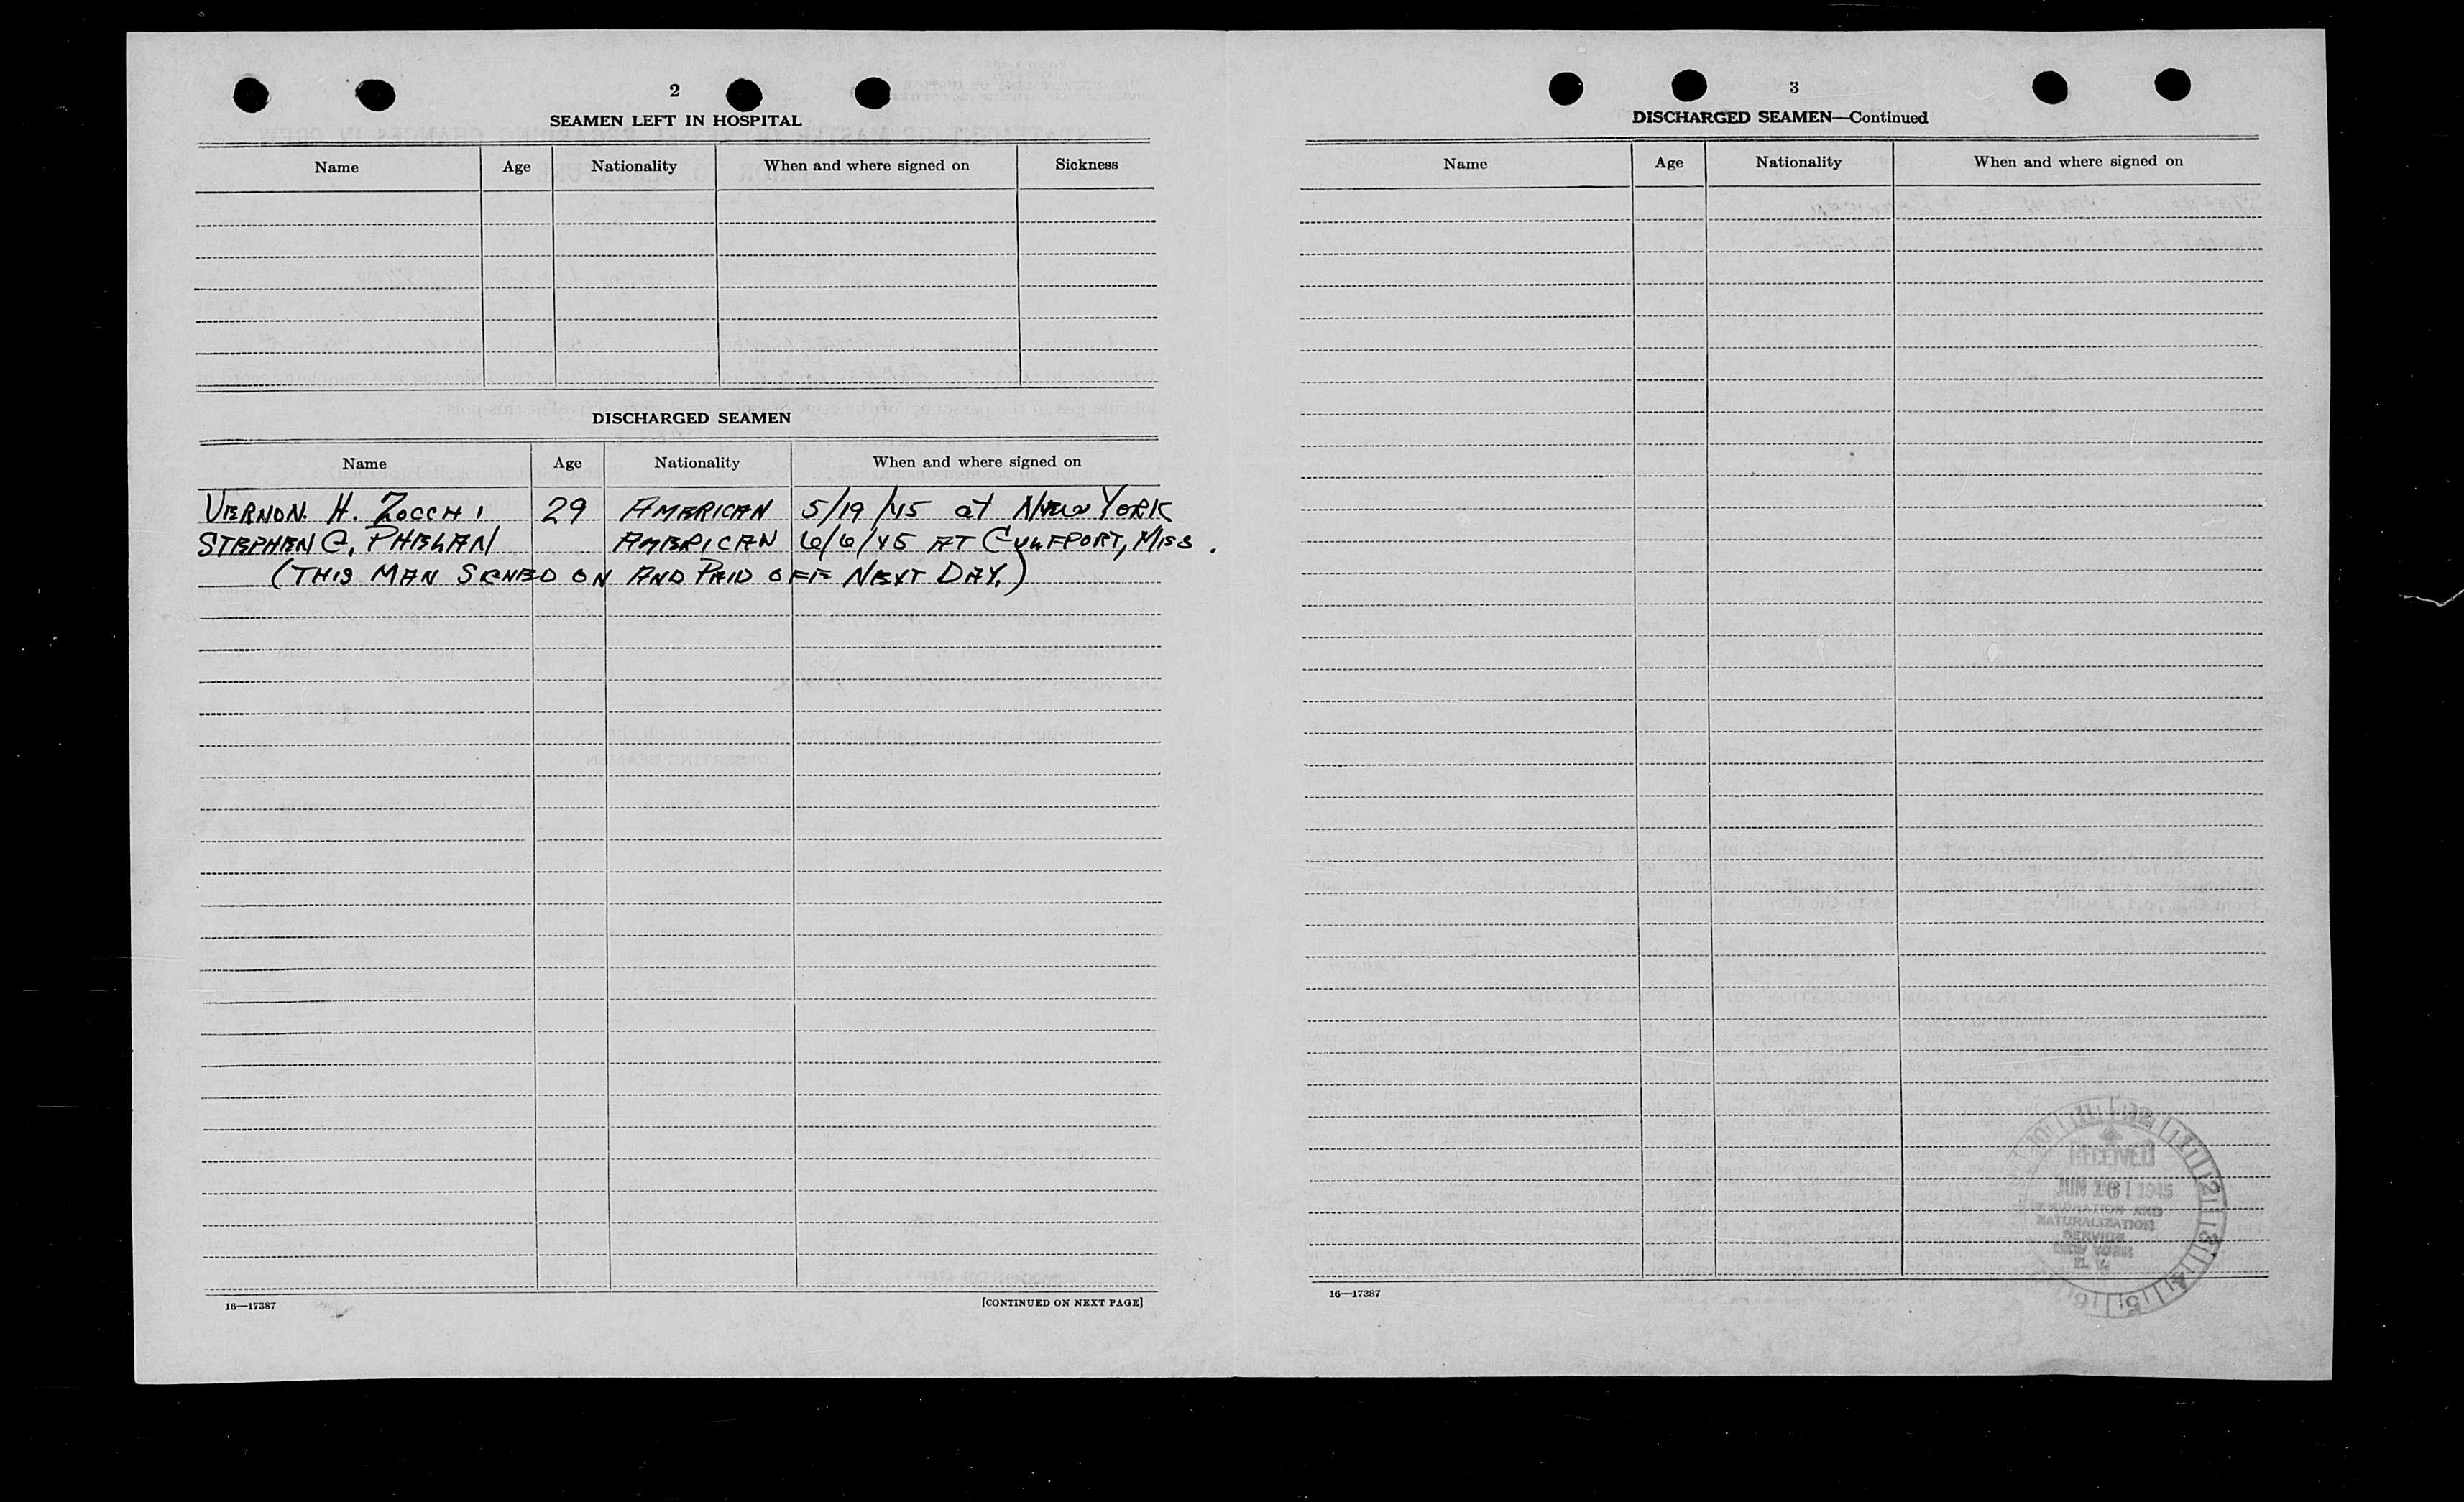 2
SEAMEN LEFT IN HOSPITAL
Name Age Nationality When and where signed on Sickness
DISCHARGED SEAMEN
Name Age Nationality When and where signed on
VERNON H. ZOCCHI 29 AMERICAN 5/19/45 at NEW YORK
STEPHEN C, PHELAN AMERICAN 6/6/45 AT GULFPORT, MISS.
(THIS MAN SIGNED ON AND PAID OFF NEXT DAY.)
16—17387 [CONTINUED ON NEXT PAGE]
3
DISCHARGED SEAMEN—Continued
Name Age Nationality When and where signed on
10 11 12 1 2 3 4 5 6
RECEIVED
JUN 16 1945
IMMIGRATION AND
NATURALIZATION
SERVICE
NEW YORK
N. Y.
16—17387